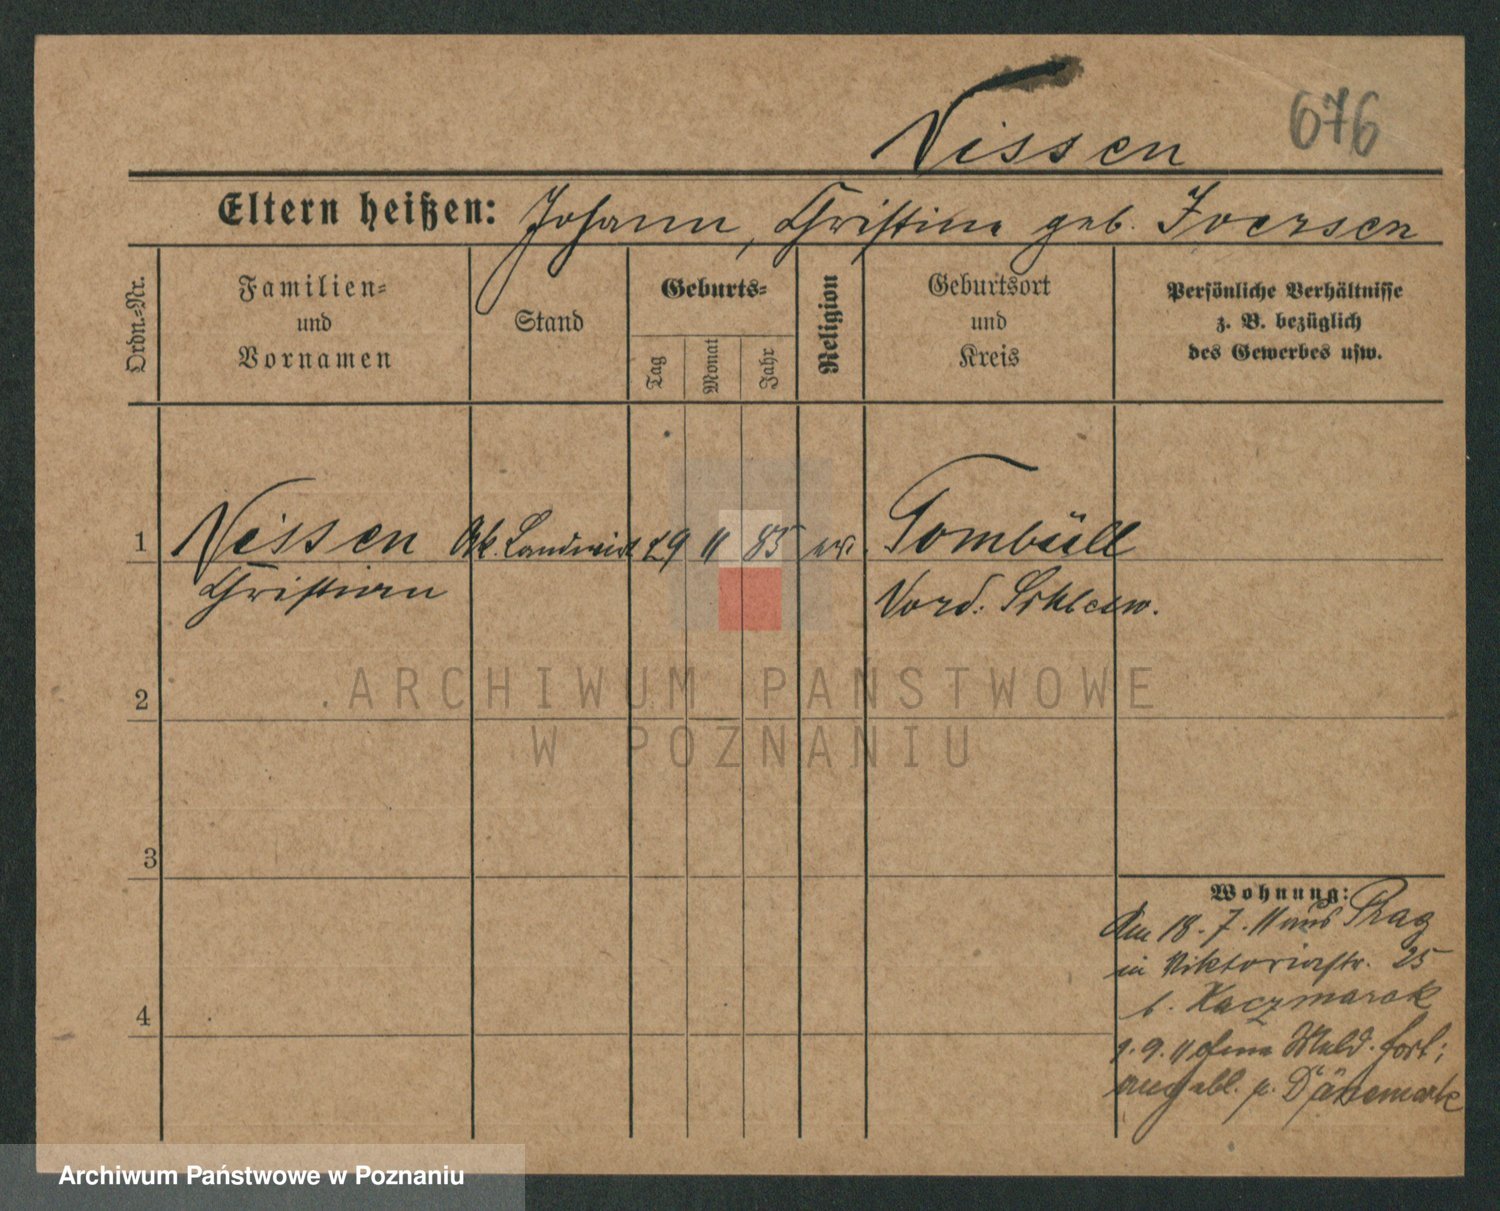 Nissen 676
Eltern heißen: Johann, Christine geb. Iversen
Ordn.-Nr.
Familien-
und
Vornamen
Stand
Geburts-
Tag
Monat
Jahr
Religion
Geburtsort
und
Kreis
Persönliche Verhältnisse
z. B. bezüglich
des Gewerbes usw.
1 Nissen Landwirt 29 11 85 ev. Tombüll
Christian Nord. Schlesw.
2
3
4
Wohnung:
Am 18.7.11 aus Prag
in Viktoriastr. 25
b. Kaczmarek
9.11 ohne Meld. fort;
angebl. n. Dänemark
ARCHIWUM PAŃSTWOWE
W POZNANIU
Archiwum Państwowe w Poznaniu